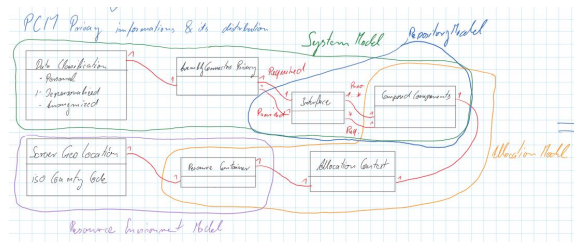 PCM Privacy informations & its distribution
System Model
Repository Model
Data Classification
- Personal
- Depersonalized
- Anonymized
1
1
Assembly Connector Privacy
1
Required
1
Provided
1
1
Interface
Prov.
1
1
Req.
1
Composed Components
1
Server Geolocation
ISO Country Code
1
1
Resource Container
1
1
Allocation Context
1
Allocation Model
Resource Environment Model